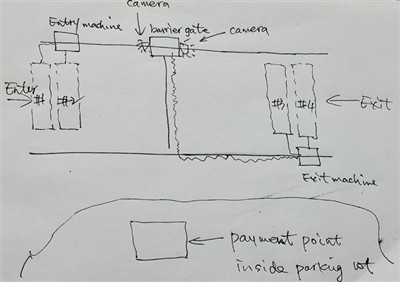 camera
Entry machine
barrier gate
camera
Enter
#1
#2
#3
#4
Exit
Exit machine
payment point
inside parking lot